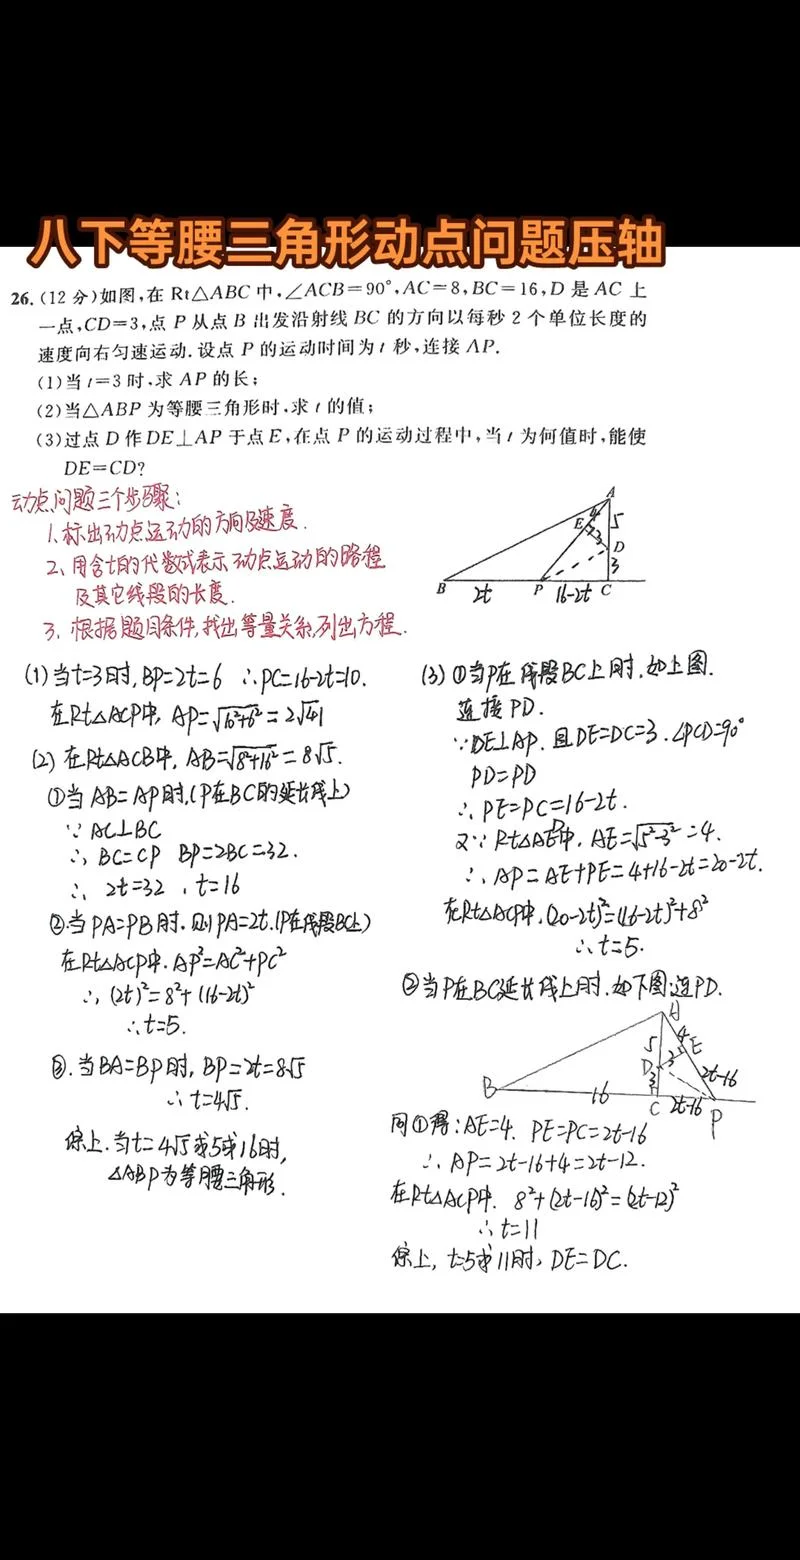 八下等腰三角形动点问题压轴
26.(12分)如图,在Rt△ABC中,∠ACB=90°,AC=8,BC=16,D是AC上
一点,CD=3,点P从点B出发沿射线BC的方向以每秒2个单位长度的
速度向右匀速运动.设点P的运动时间为t秒,连接AP.
(1)当t=3时,求AP的长;
(2)当△ABP为等腰三角形时,求t的值;
(3)过点D作DE⊥AP于点E,在点P的运动过程中,当t为何值时,能使
DE=CD?
动点问题三个步骤:
1.标出动点运动的方向及速度.
2、用含t的代数式表示动点运动的路程
及其它线段的长度.
3、根据题目条件,找出等量关系,列出方程.
A
E 4 5
3 D
3
B 2t P 16-2t C
(1)当t=3时,BP=2t=6 ∴PC=16-2t=10.
在Rt△ACP中,AP=√10²+6²=2√41
(2)在Rt△ACB中,AB=√8²+16²=8√5.
①当AB=AP时,(P在BC的延长线上)
∵AC⊥BC
∴BC=CP BP=2BC=32.
∴2t=32,t=16
②.当PA=PB时.则PA=2t.(P在线段BC上)
在Rt△ACP中.AP²=AC²+PC²
∴(2t)²=8²+(16-2t)²
∴t=5.
③.当BA=BP时,BP=2t=8√5
∴t=4√5.
综上.当t=4√5或5或16时,
△ABP为等腰三角形.
(3)①当P在线段BC上时.如上图.
连接PD.
∵DE⊥AP.且DE=DC=3.∠PCD=90°
PD=PD
∴PE=PC=16-2t.
又∵Rt△AED中,AE=√5²-3²=4.
∴AP=AE+PE=4+16-2t=20-2t.
在Rt△ACP中.(20-2t)²=(16-2t)²+8²
∴t=5.
②当P在BC延长线上时.如下图:连PD.
A
5 4
D 3 E
3 2t-16
B 16 C 2t-16 P
同①得:AE=4. PE=PC=2t-16
∴AP=2t-16+4=2t-12.
在Rt△ACP中. 8²+(2t-16)²=(2t-12)²
∴t=11
综上,t=5或11时,DE=DC.